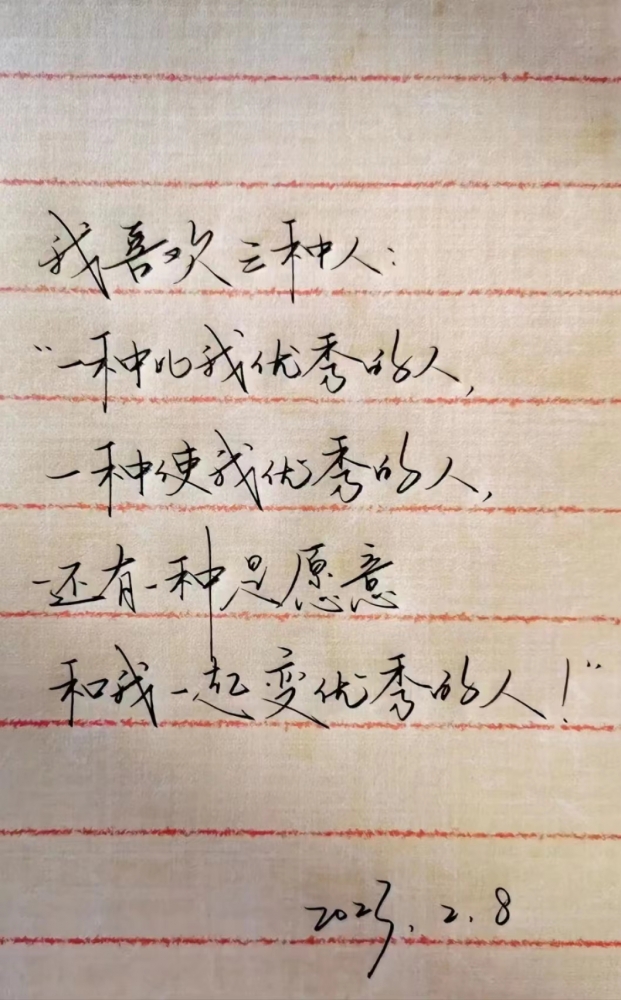 我喜欢三种人：
“一种比我优秀的人，
一种使我优秀的人，
还有一种是愿意
和我一起变优秀的人！”
2023.2.8